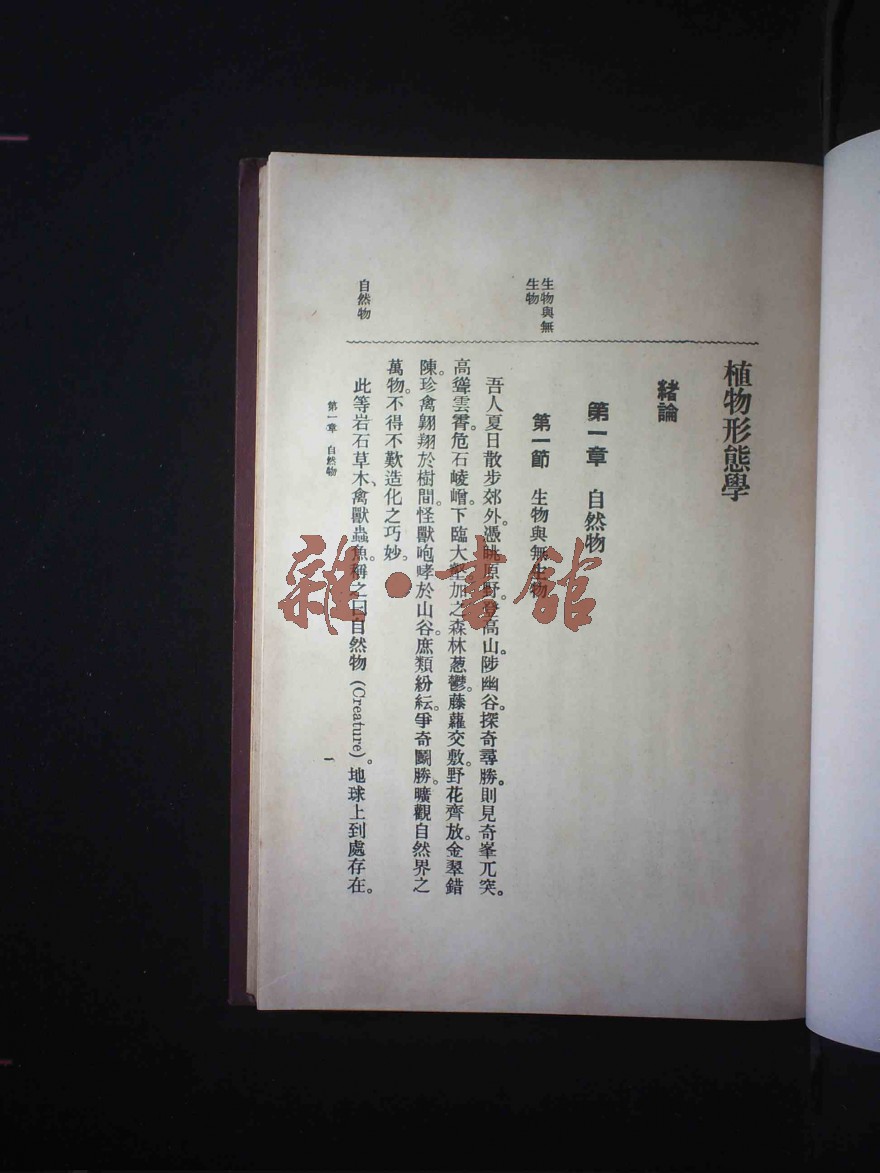 植物形態學
緒論
第一章　自然物
第一節　生物與無生物
生物與無
生物
吾人夏日散步郊外。憑眺原野。登高山。陟幽谷。探奇尋勝。則見奇峯兀突。
高聳雲霄。危石崚嶒。下臨大壑。加之森林葱鬱。藤蘿交敷。野花齊放。金翠錯
陳。珍禽翱翔於樹間。怪獸咆哮於山谷。庶類紛紜。爭奇鬭勝。曠觀自然界之
萬物。不得不歎造化之巧妙。
自然物
此等岩石草木、禽獸蟲魚。稱之曰自然物 (Creature)。地球上到處存在。
第一章　自然物
一
雜·書館